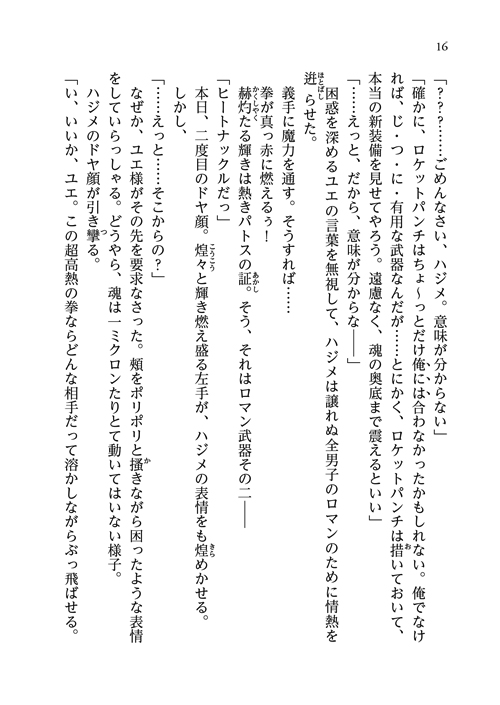 16
「？？？……ごめんなさい、ハジメ。意味が分からない」
「確かに、ロケットパンチはちょ～っとだけ俺には合わなかったかもしれない。俺でなけ
れば、じ・つ・に・有用な武器なんだが……とにかく、ロケットパンチは措いておいて、
本当の新装備を見せてやろう。遠慮なく、魂の奥底まで震えるといい」
「……えっと、だから、意味が分からな――」
困惑を深めるユエの言葉を無視して、ハジメは譲れぬ全男子のロマンのために情熱を
迸らせた。
義手に魔力を通す。そうすれば……
拳が真っ赤に燃えるぅ！
赫灼たる輝きは熱きパトスの証。そう、それはロマン武器その二――
「ヒートナックルだっ」
本日、二度目のドヤ顔。煌々と輝き燃え盛る左手が、ハジメの表情をも煌めかせる。
しかし、
「……えっと……そこからの？」
なぜか、ユエ様がその先を要求なさった。頰をポリポリと掻きながら困ったような表情
をしていらっしゃる。どうやら、魂は一ミクロンたりとて動いてはいない様子。
ハジメのドヤ顔が引き攣る。
「い、いいか、ユエ。この超高熱の拳ならどんな相手だって溶かしながらぶっ飛ばせる。